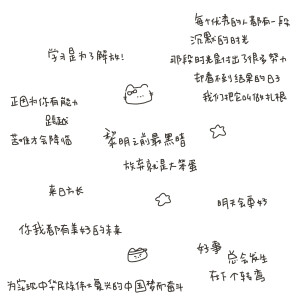 每个优秀的人都有一段
沉默的时光
那段时光是付出了很多努力
却看不到结果的日子
我们把它叫做扎根
学习是为了解放!
正因为你有能力
苦难才会降临
黎明之前最黑暗
放弃就是大笨蛋
来日方长
明天会更好
你我都有美好的未来
好事
总会发生
在下个转弯
为实现中华民族伟大复兴的中国梦而奋斗